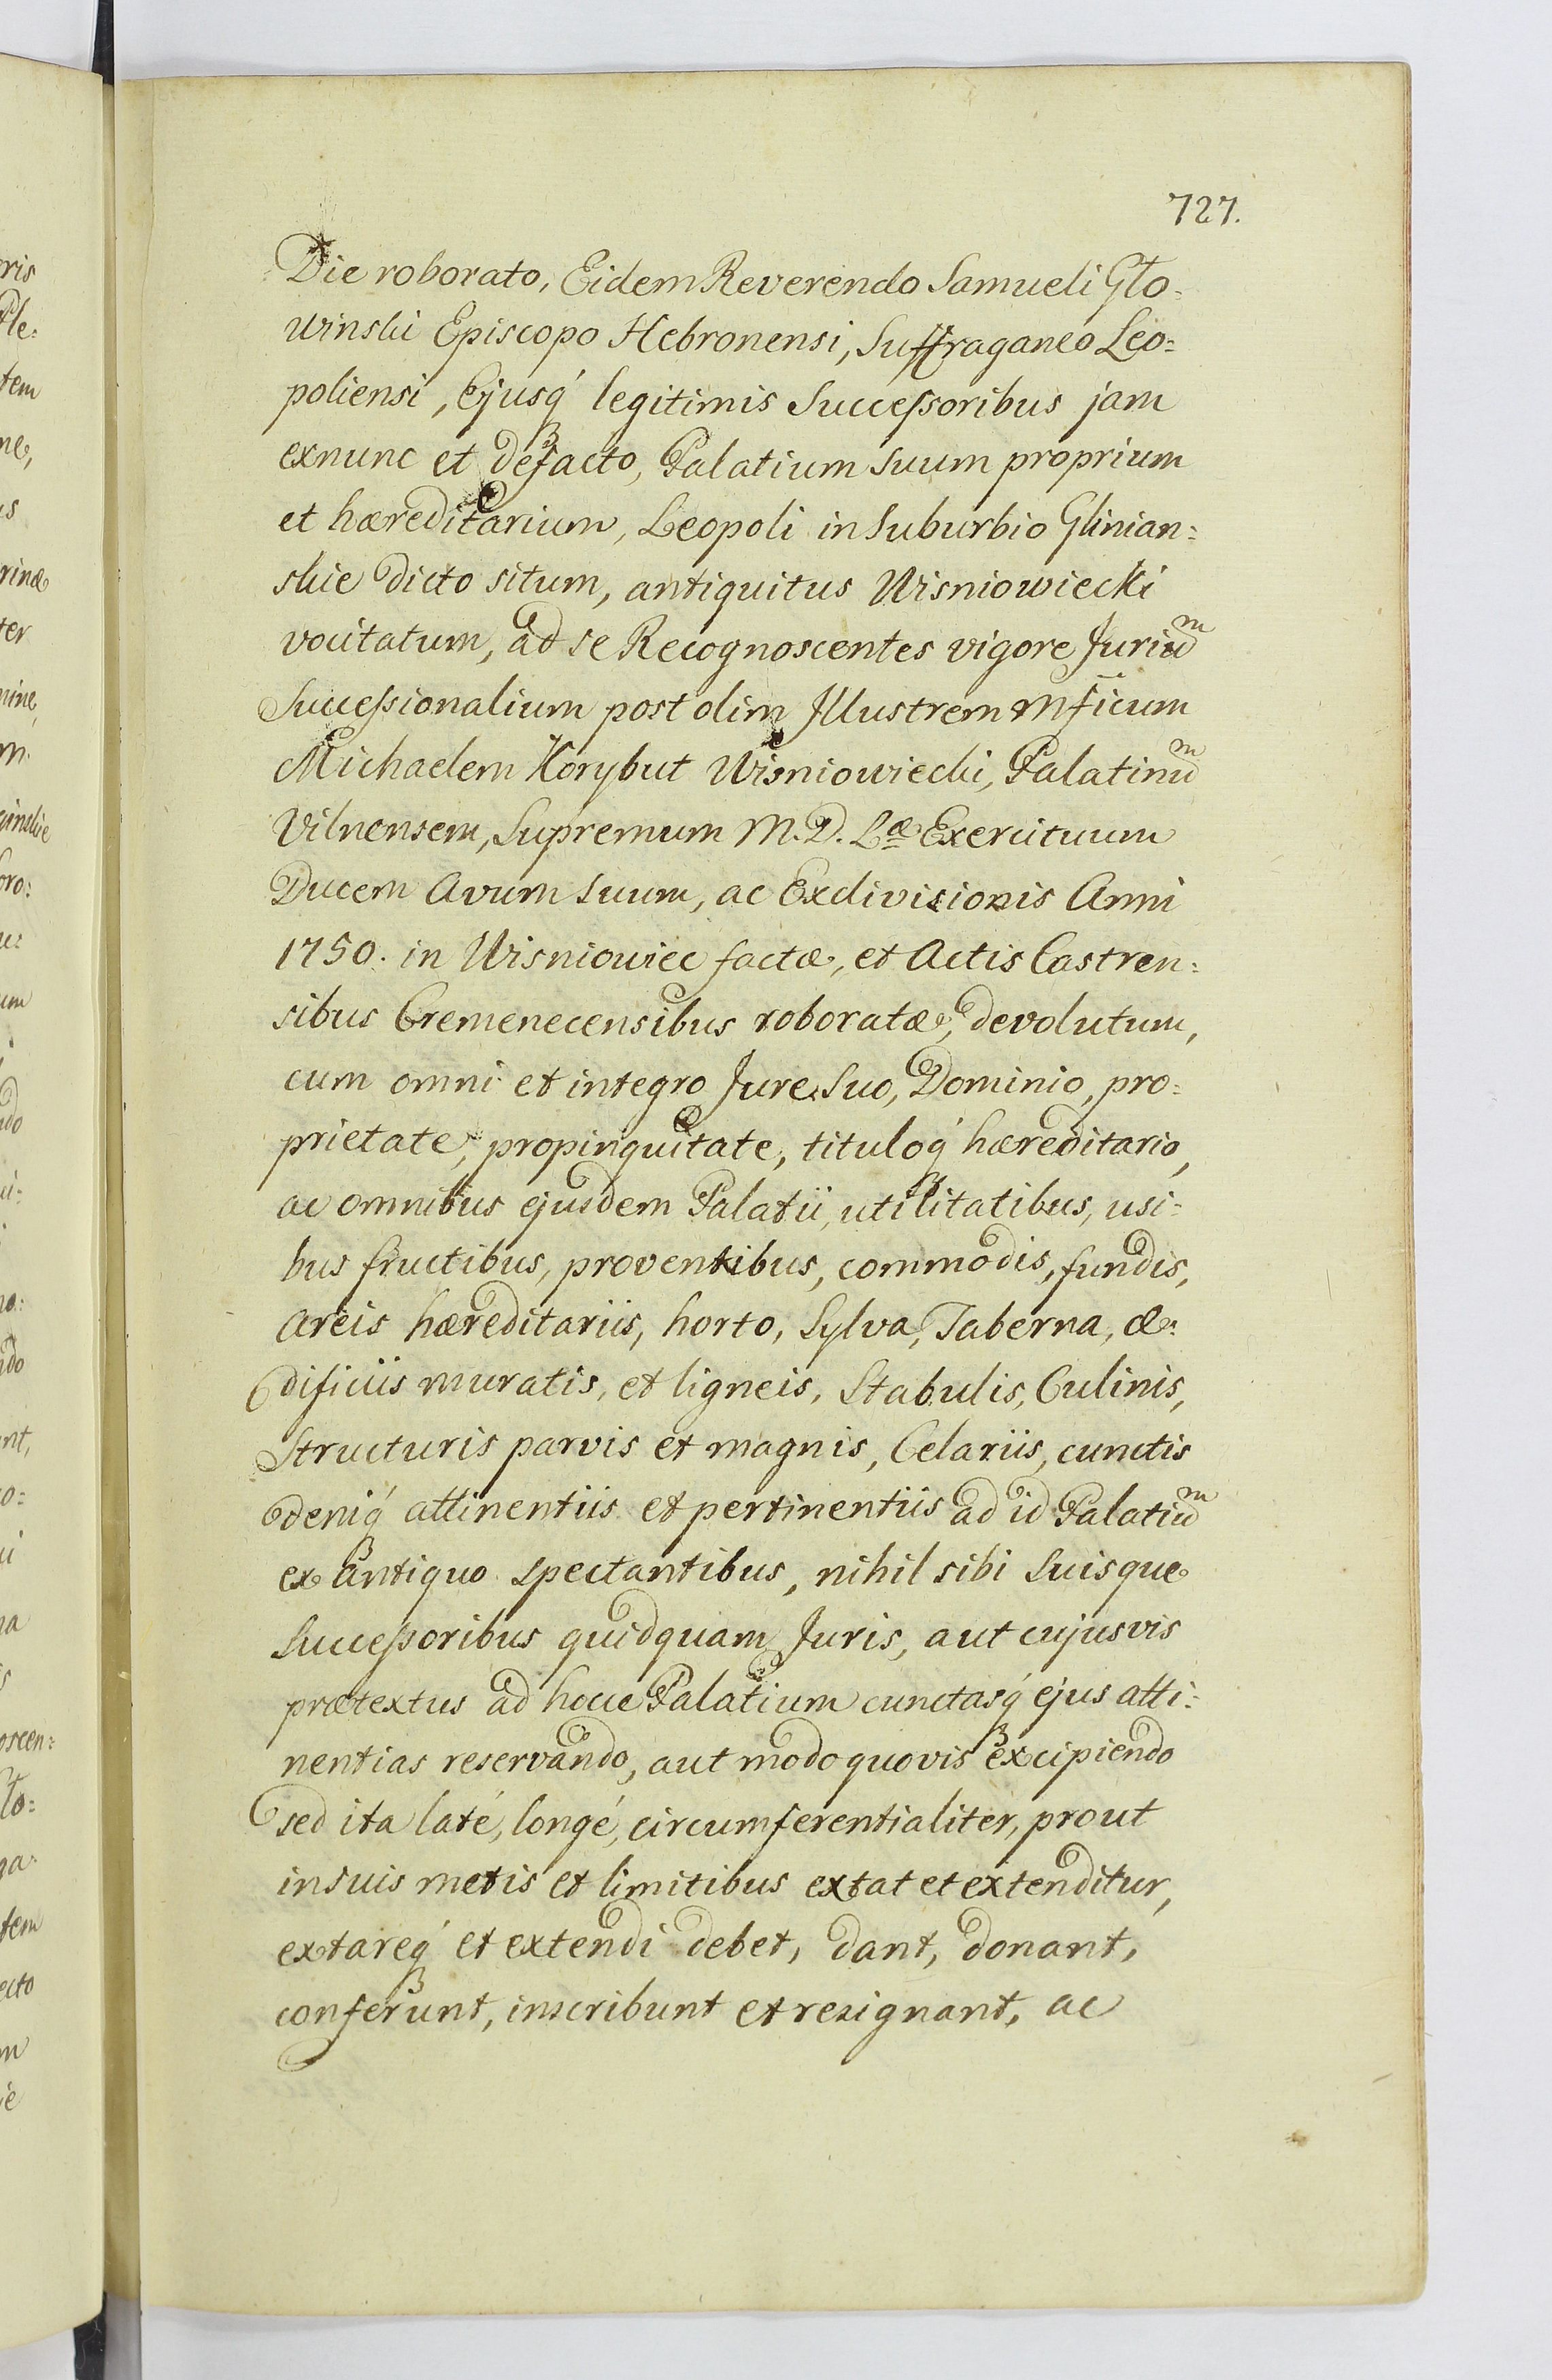 727.
Die roborato, Eidem Reverendo Samueli Glo=
winski Episcopo Hebronensi, Suffraganeo Leo=
poliensi, Ejusq́ legitimis Successoribus jam
exnunc et defacto, Palatium suum proprium
et hæreditarium, Leopoli in Suburbio Glinian=
skie dicto situm, antiquitus Wisniowiecki
vocitatum, ad se Recognoscentes vigore Juriuͫ
Successionalium post olim Illustrem Mficum
Michaelem Korybut Wisniowiecki, Palatinuͫ
Vilnensem, Supremum M. D. Læ Exercituum
Ducem Avum suum, ac Exdivisionis Anni
1750. in Wisniowiec factæ, et Actis Castren=
sibus Cremenecensibus roboratæ, devolutum,
cum omni et integro Jure Suo, Dominio, pro=
prietate, propinquitate, tituloq́ hæreditario,
ac omnibus ejusdem Palatii, utilitatibus, usi=
bus fructibus, proventibus, commodis, fundis,
areis hæreditariis, horto, Sylva, Taberna, æ=
dificiis muratis, et ligneis, Stabulis, Culinis,
Structuris parvis et magnis, Celariis, cunctis
deniq́ attinentiis et pertinentiis ad id Palatiuͫ
ex antiquo spectantibus, nihil sibi Suisque
Successoribus quidquam Juris, aut cujusvis
prætextus ad hocce Palatium cunctasq́ ejus atti=
nentias reservando, aut modo quovis excipiendo
sed ita laté, longé, circumferentialiter, prout
insuis metis et limitibus extat et extenditur,
extareq́ et extendi debet, dant, donant,
conferunt, inscribunt et resignant, ac